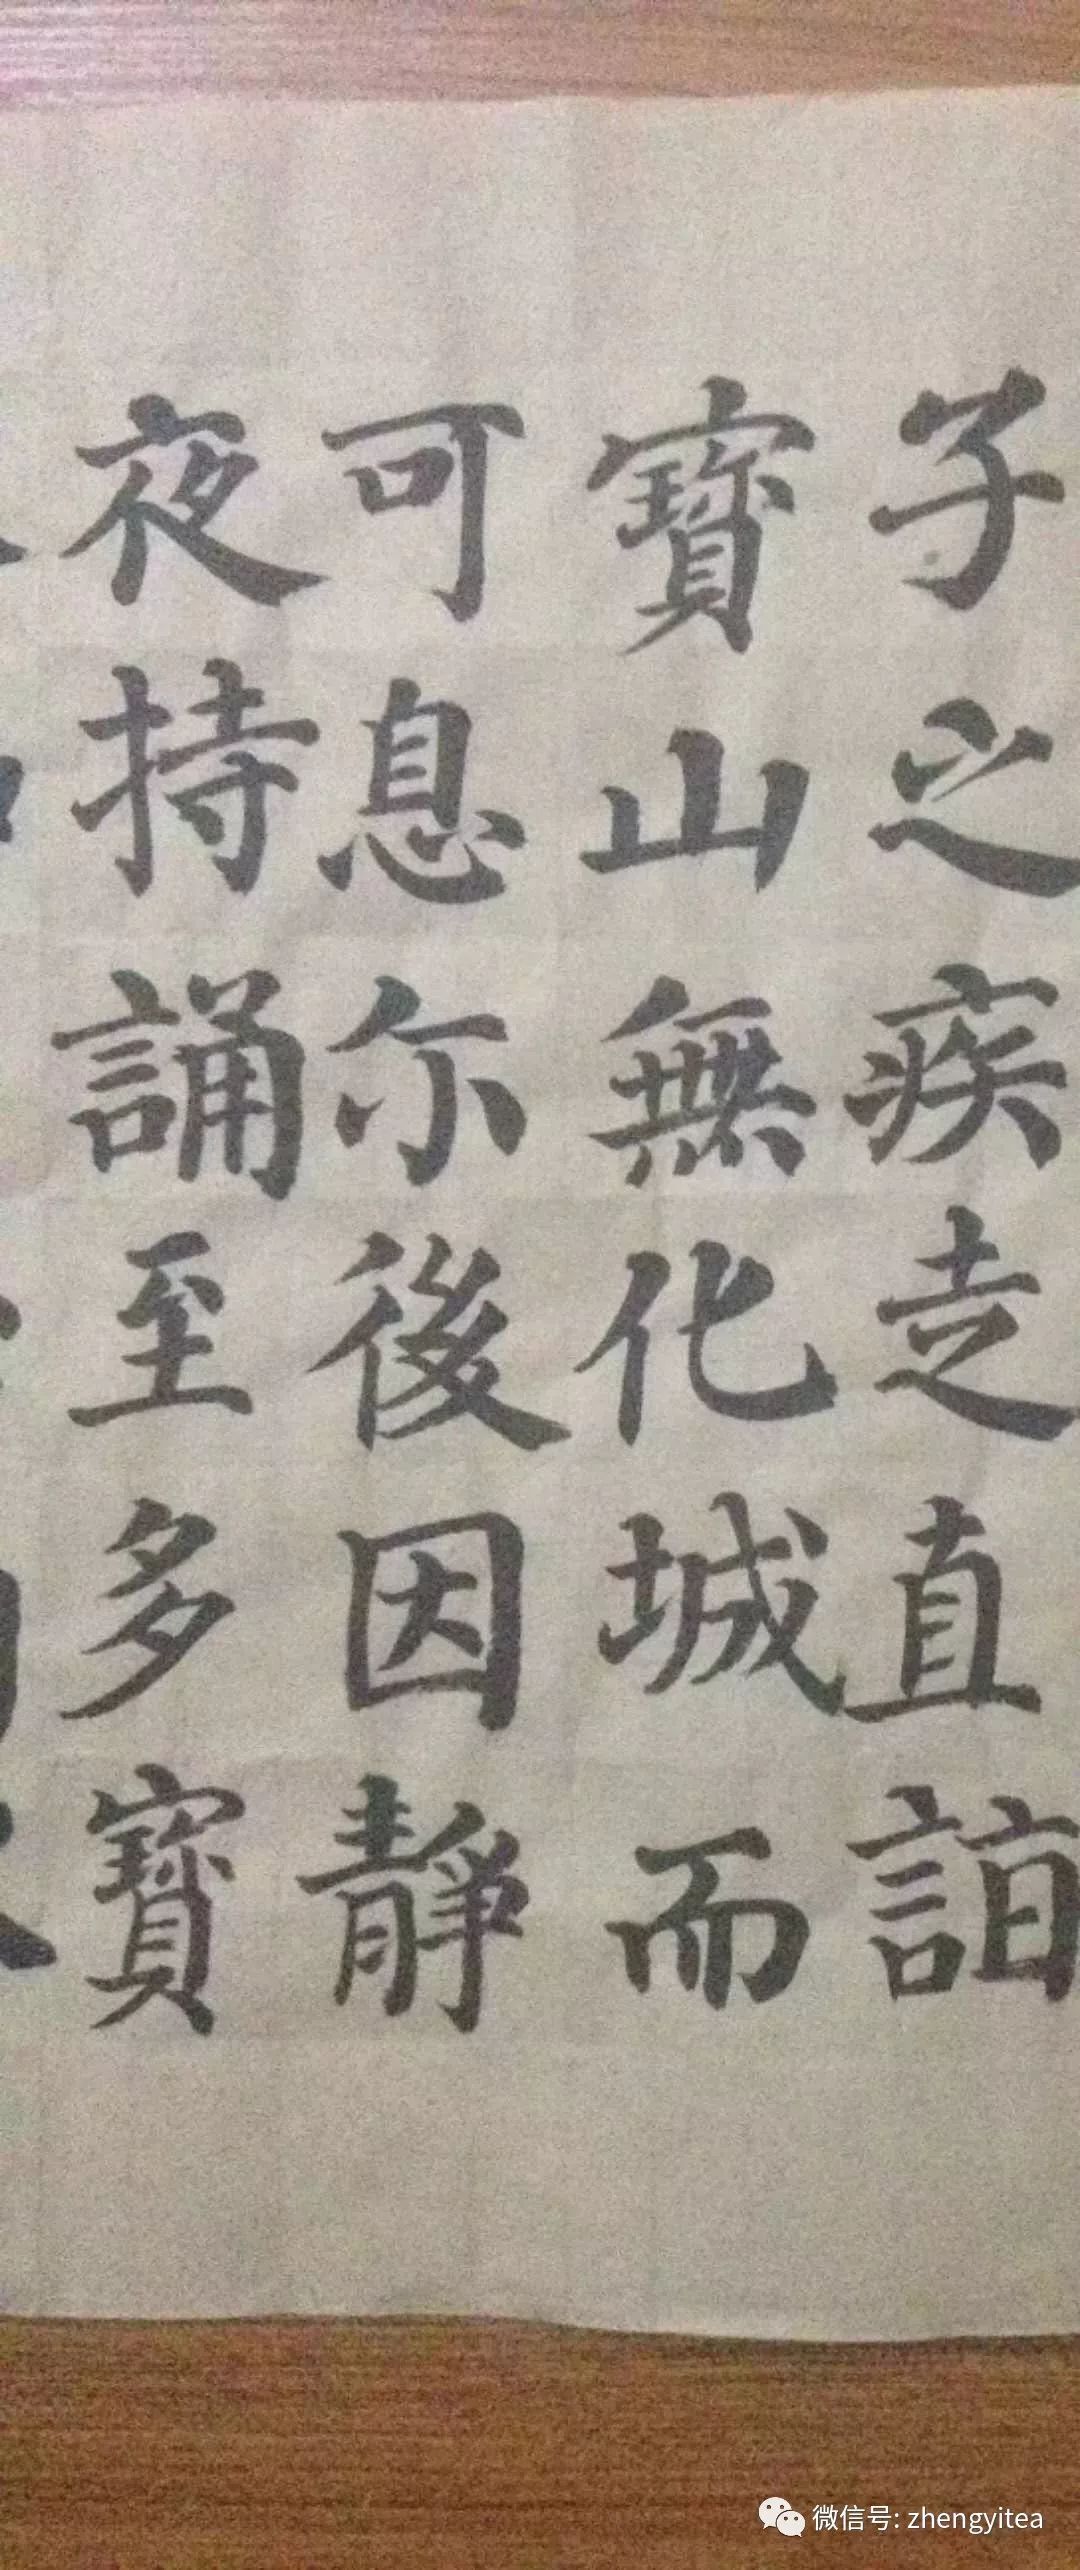 子之疾走直詣
寶山無化城而
可息尓後因靜
夜持誦至多寶
微信号: zhengyitea